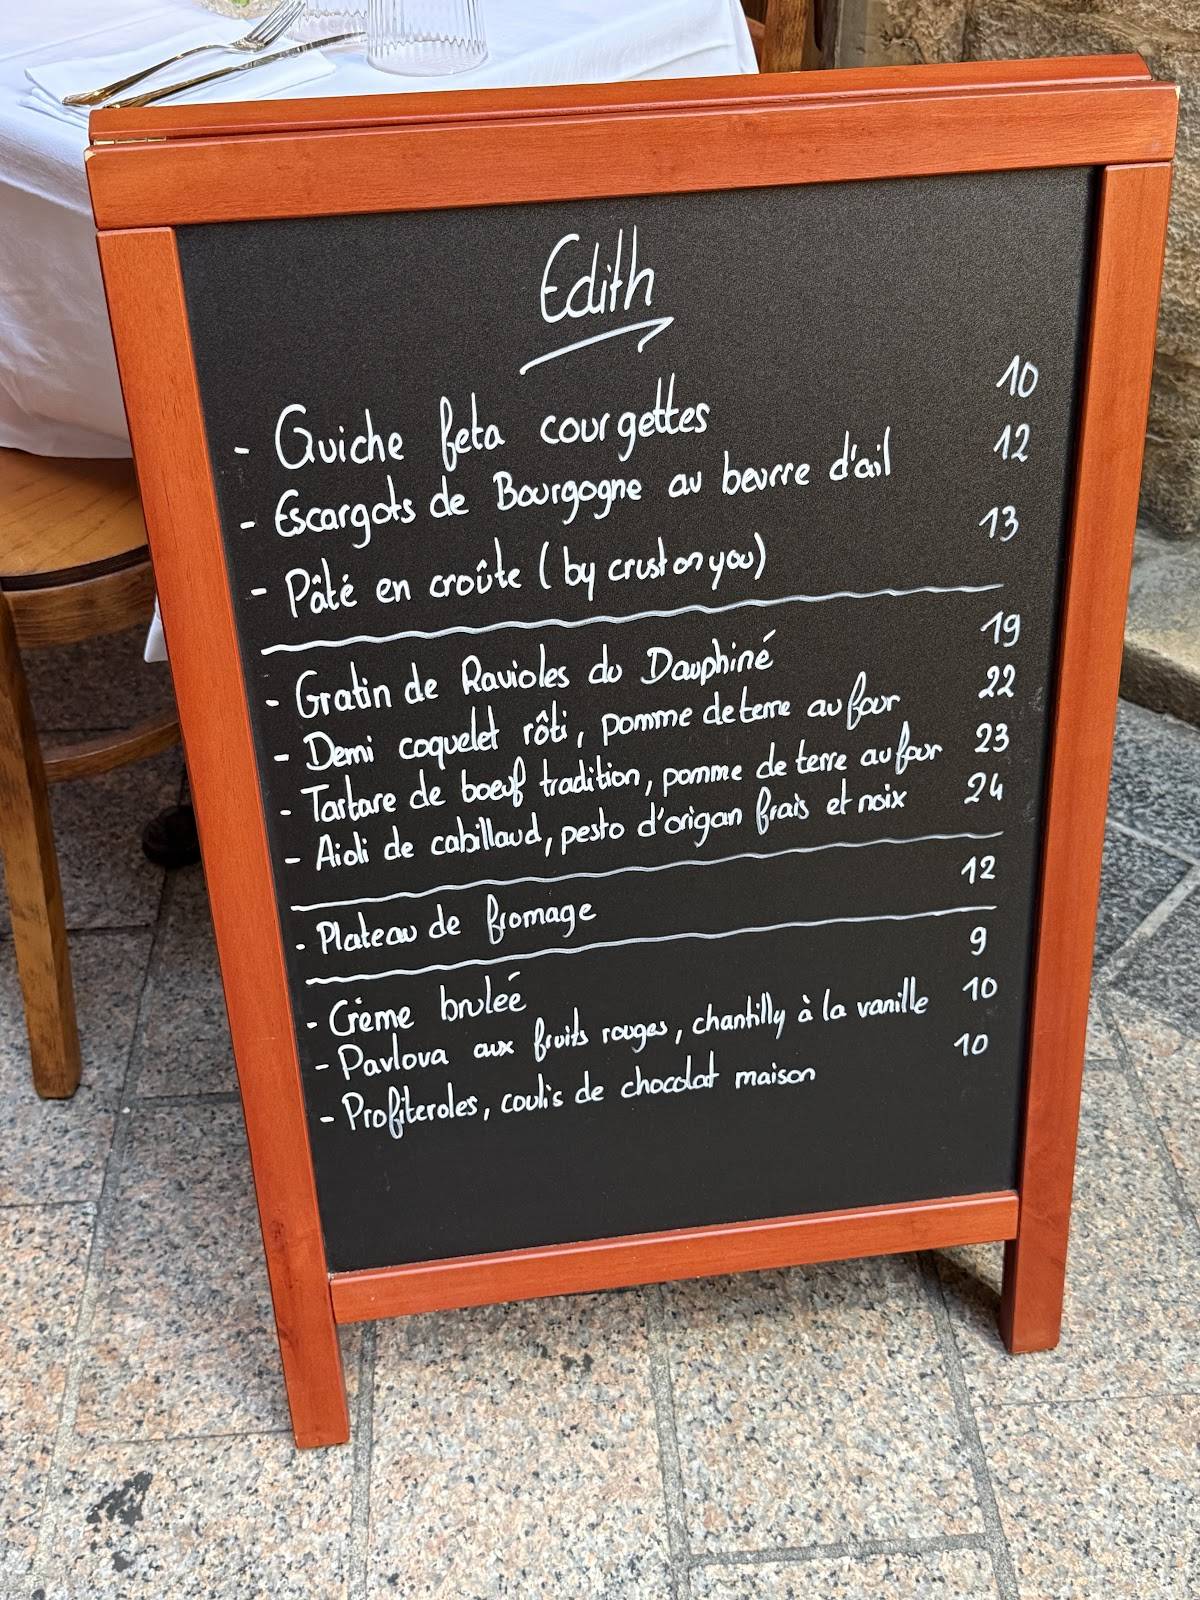 Edith
- Quiche feta courgettes 10
- Escargots de Bourgogne au beurre d'ail 12
- Pâté en croûte (by crust on you) 13
- Gratin de Ravioles du Dauphiné 19
- Demi coquelet rôti, pomme de terre au four 22
- Tartare de boeuf tradition, pomme de terre au four 23
- Aioli de cabillaud, pesto d'origan frais et noix 24
- Plateau de fromage 12
- Crème bruleé 9
- Pavlova aux fruits rouges, chantilly à la vanille 10
- Profiteroles, coulis de chocolat maison 10